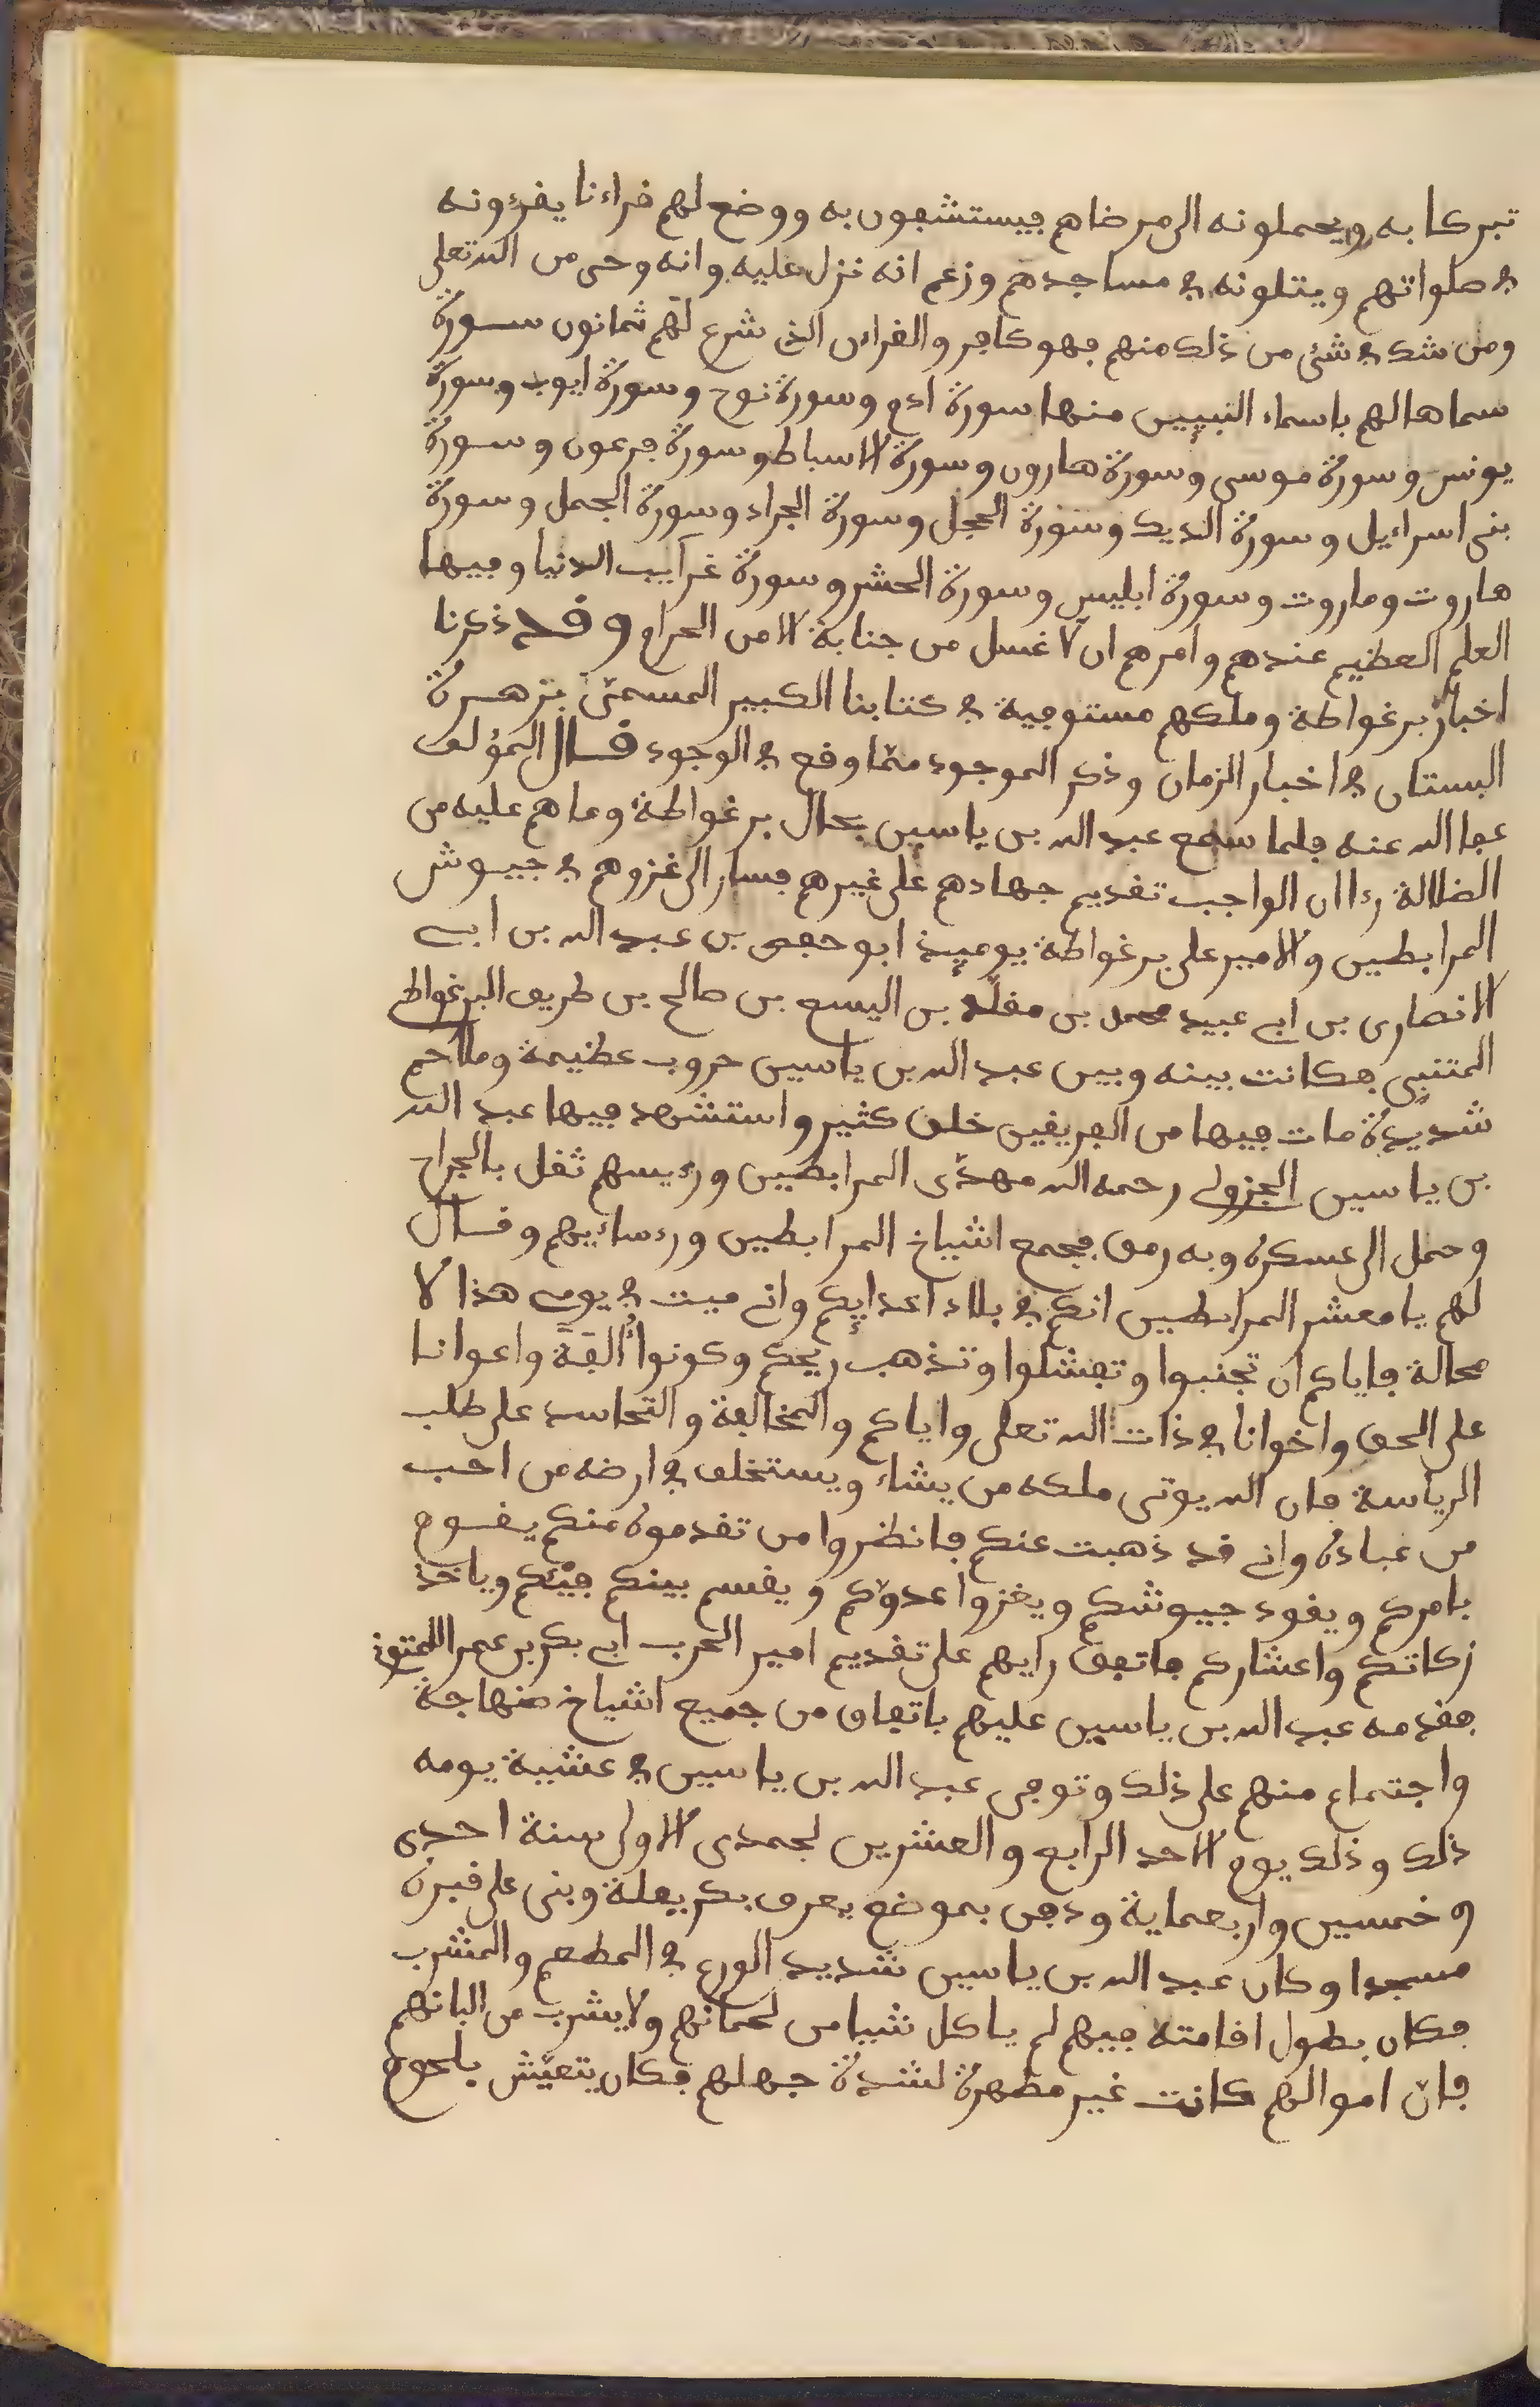 تبركا به ويحملونه الى مرضاهم فيستشفون به ووضع لهم قراءنا يقرءونه
في صلواتهم ويتلونه في مساجدهم وزعم انه نزل عليه وانه وحى من الله تعلى
ومن شك في شئ من ذلك منهم فهو كافر والقراءن الذي شرع لهم ثمانون سورة
سماها لهم باسماء النبيين منها سورة ادم وسورة نوح وسورة ايوب وسورة
يونس وسورة موسى وسورة هارون وسورة الاسباط وسورة فرعون وسورة
بنى اسراءيل وسورة الديك وسورة الحجل وسورة الجراد وسورة الجمل وسورة
هاروت وماروت وسورة ابليس وسورة الحشر وسورة غرآيب الدنيا وفيها
العلم العظيم عندهم وامرهم ان لا غسل من جنابة الا من الحرام وقد ذكرنا
اخبار برغواطة وملكهم مستوفية في كتابنا الكبير المسمّى بزهرة
البستان في اخبار الزمان وذكر الموجود ممّا وقع في الوجود قال المؤلف
عفا الله عنه فلما سمع عبد الله بن ياسين بحال برغواطة وما هم عليه من
الضلالة رءا ان الواجب تقديم جهادهم على غيرهم فسار الى غزوهم في جيوش
المرابطين والامير على برغواطة يوميٕذ ابو حفص بن عبد الله بن ابى
الانصارى بن ابى عبيد محمد بن مقلّد بن اليسع بن صالح بن طريف البرغواطى
المتنبى فكانت بينه وبين عبد الله بن ياسين حروب عظيمة وملاحم
شديدة مات فيها من الفريقين خلق كثير واستشهد فيها عبد الله
بن ياسين الجزولى رحمه الله مهدّى المرابطين ورءيسهم ثقل بالجراح
وحمل الى عسكره وبه رمق فجمع اشياخ المرابطين ورءساءيهم وقال
لهم يا معشر المرابطين انكم في بلاد اعدايٕكم وانى ميت في يومى هذا لا
محالة فاياكم ان تجنبوا وتفشلوا وتذهب ريحكم وكونوا أُلفَةً واعوانا
على الحق واخوانا في ذات الله تعلى واياكم والمخالفة والتحاسد على طلب
الرياسة فان الله يوتى ملكه من يشاء ويستخلف في ارضه من احب
من عباده وانى قد ذهبت عنكم فانظروا من تقدمونه منكم يقوم
بامركم ويقود جيوشكم ويغزوا عدوّكم ويقسم بينكم فيْئكم وياخذ
زكاتكم واعشاركم فاتفق رايهم على تقديم امير الحرب ابى بكر بن عمر اللمتونى
فقدمه عبد الله بن ياسين عليهم باتفاق من جميع اشياخ صنهاجة
واجتماع منهم على ذلك وتوفى عبد الله بن ياسين في عشية يومه
ذلك وذلك يوم الاحد الرابع والعشرين لجمدى الاولى سنة احدى
وخمسين واربعماية ودفن بموضع يعرف بكريفلة وبنى على قبره
مسجدا وكان عبد الله بن ياسين شديد الورع في المطعم والمشرب
فكان بطول اقامته فيهم لم ياكل شيا من لحمانهم ولا يشرب من البانهم
فان اموالهم كانت غير مطهرة لشدة جهلهم فكان يتعيّش بلحوم